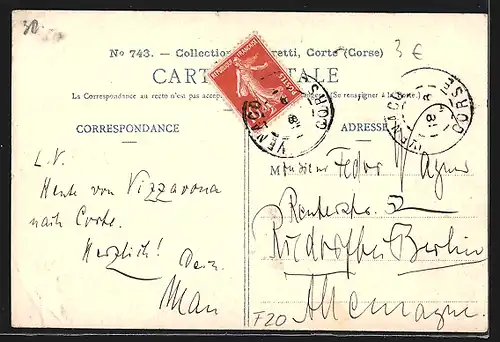 30
No 743. — Collection
retti, Corte (Corse)
3 €
CARTE POSTALE
La Correspondance au recto n'est pas accep
(Se renseigner à la Poste.)
REPUBLIQUE FRANÇAISE
POSTES
CORSE
CORSE
CORRESPONDANCE
ADRESSE
L. V.
Heute von Vizzavona
nach Corte.
Herzlich!
Dein
Man
Monsieur Fedor Wagner
52
Berlin
Allemagne
F20